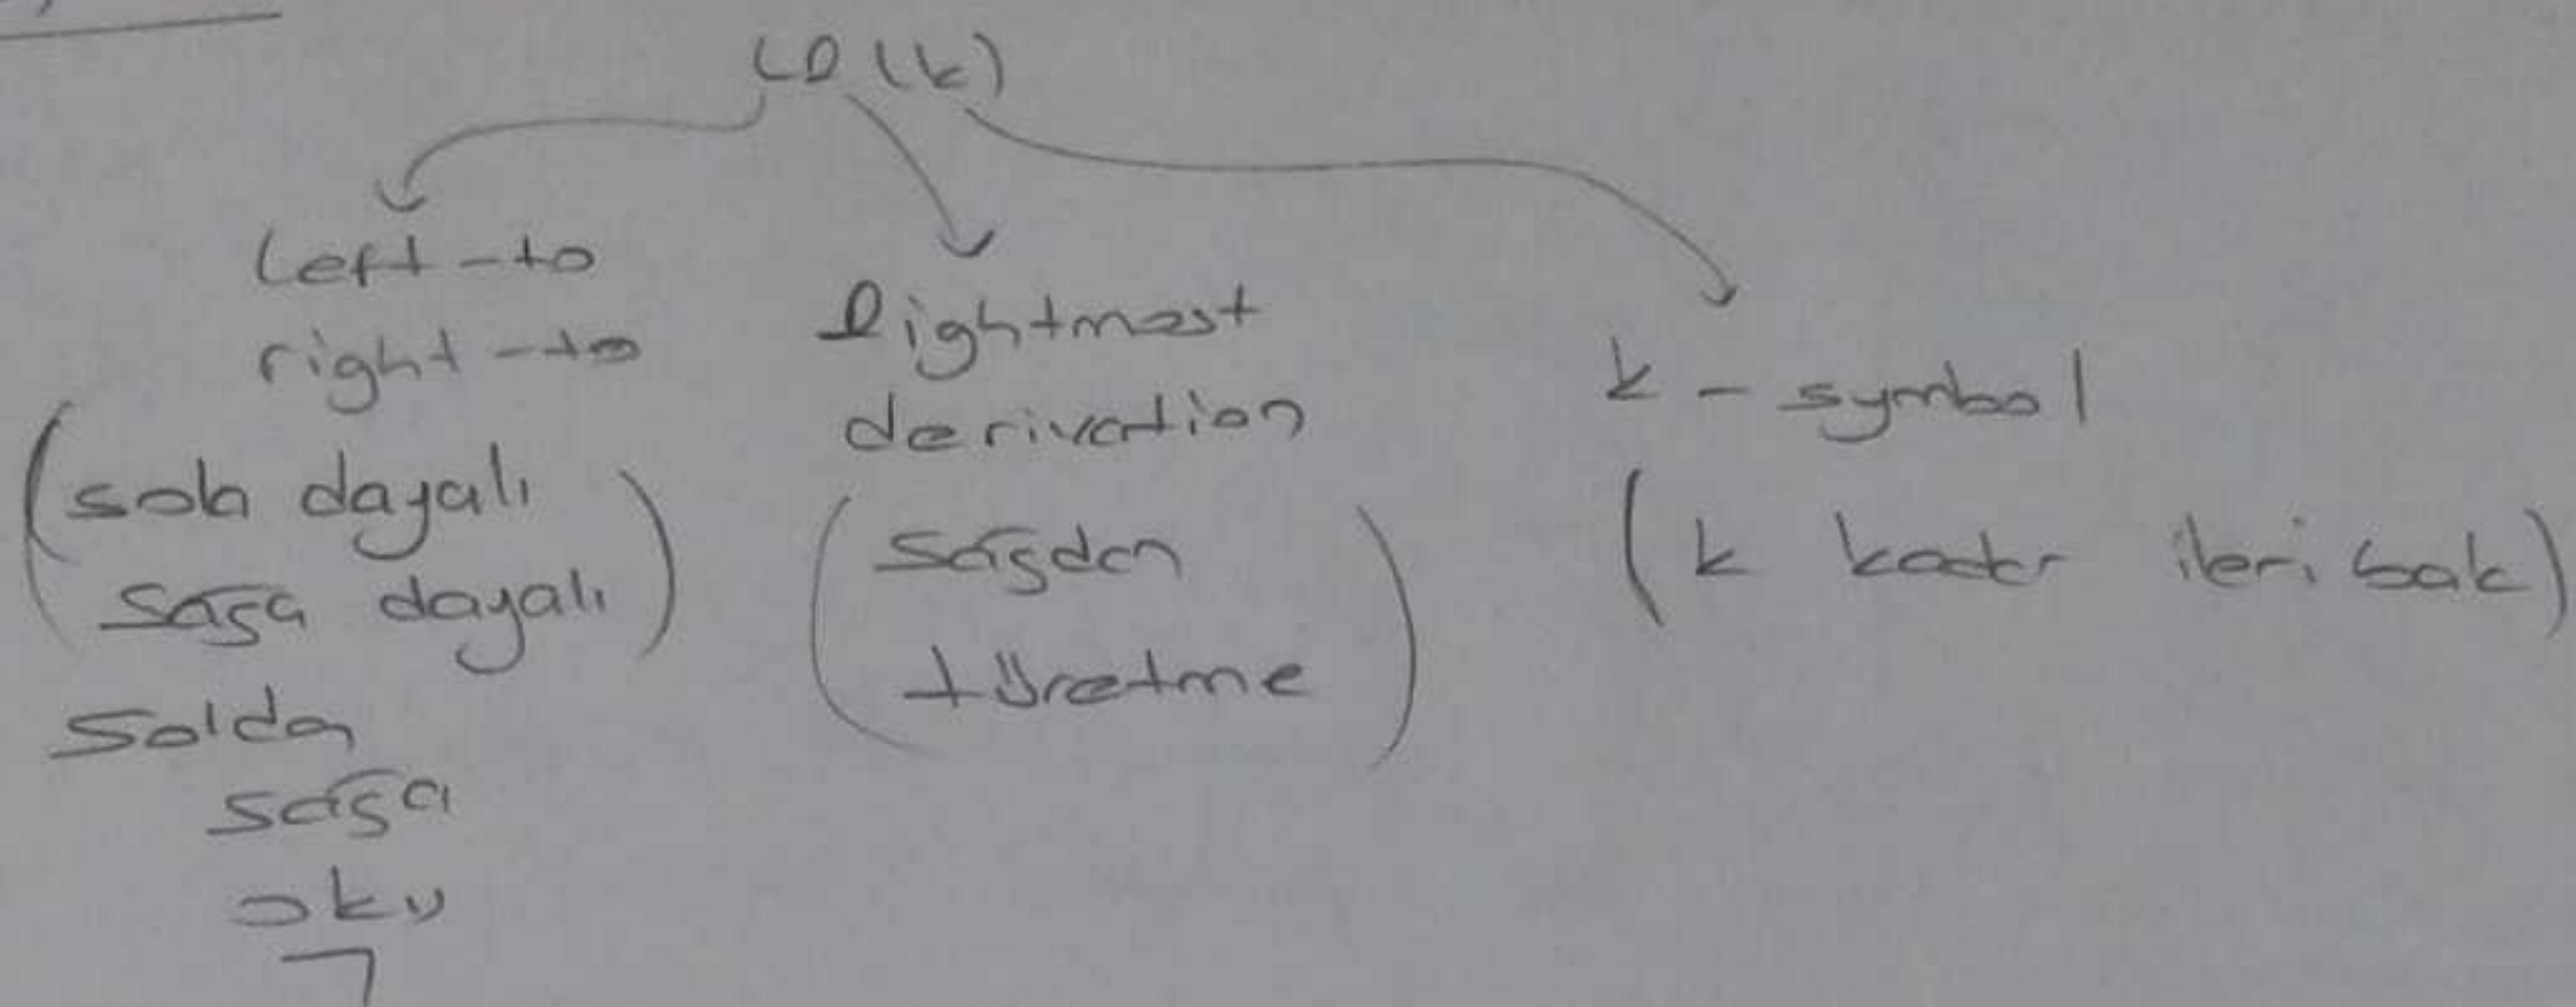 LR(k)
Left-to
right-to
(sola dayalı
sağa dayalı)
Soldan
sağa
oku
Rightmost
derivation
(sağdan
türetme)
k-symbol
(k kadar ileri bak)